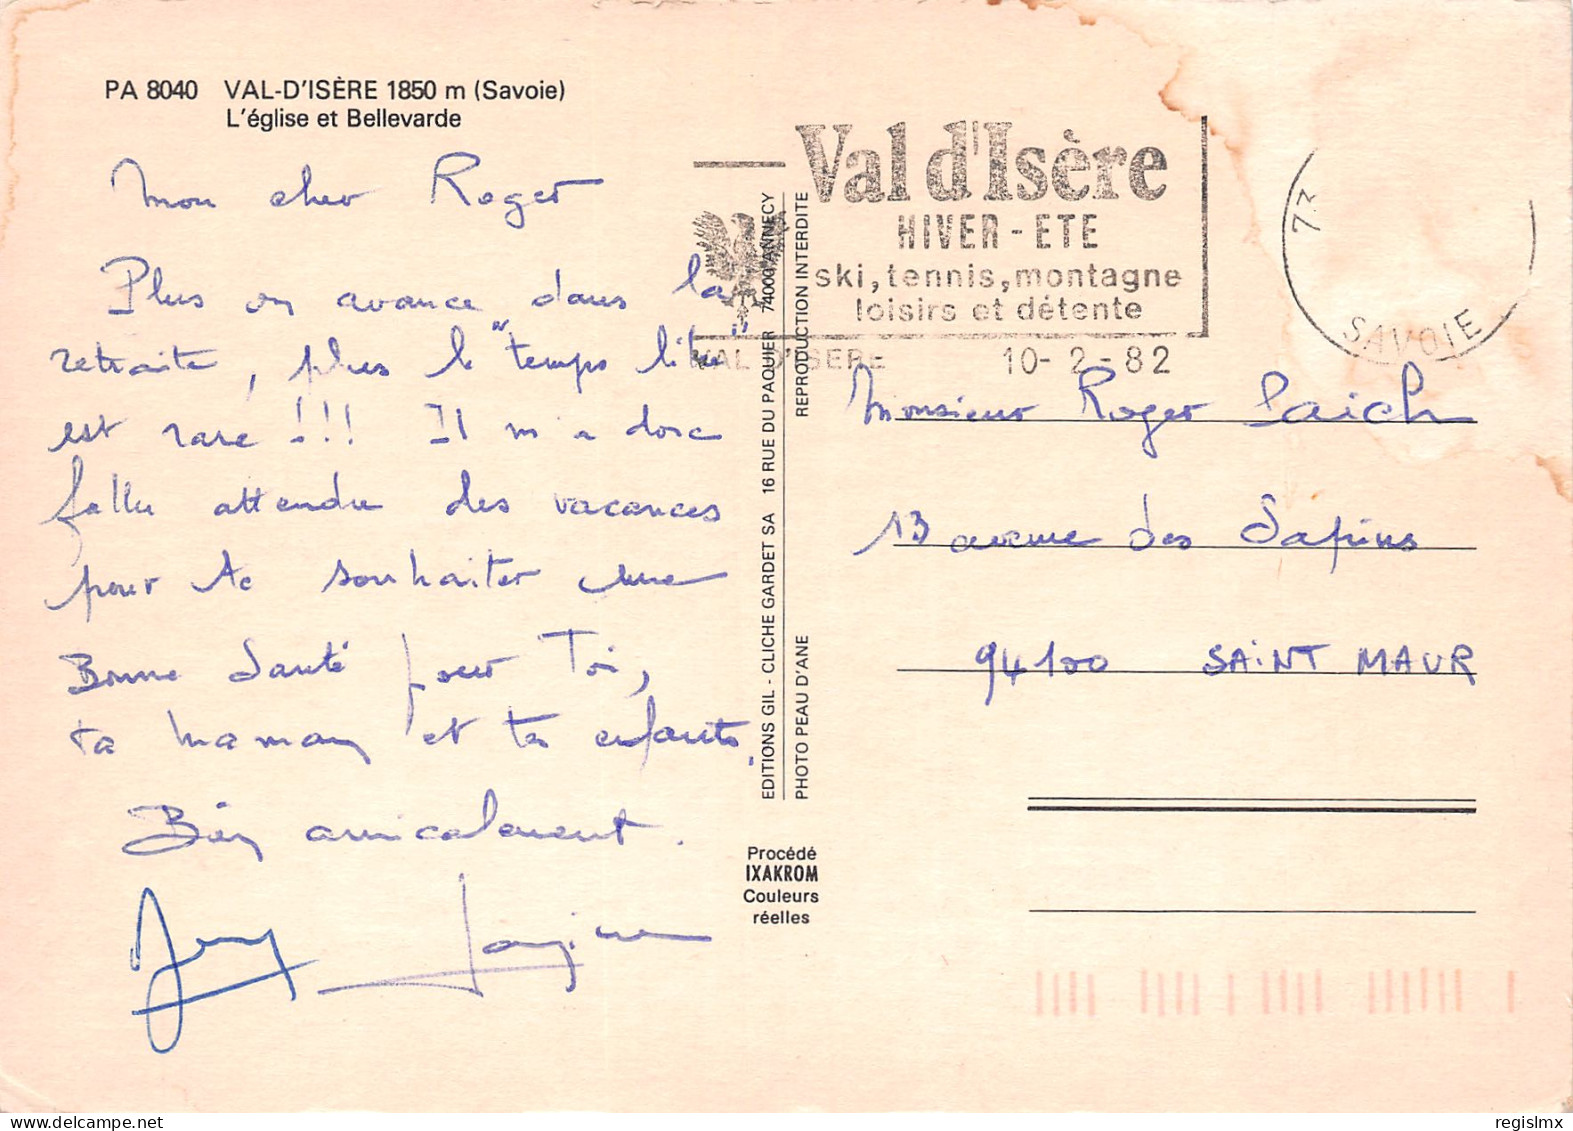 PA 8040 VAL-D'ISÈRE 1850 m (Savoie)
L'église et Bellevarde
Mon cher Roger
Plus on avance dans la
retraite, plus le "temps libre"
est rare !!! Il m'a donc
fallu attendre des vacances
pour te souhaiter une
Bonne Santé pour Toi,
ta maman et tes enfants.
Bien amicalement.
EDITIONS GIL - CLICHE GARDET SA 16 RUE DU PAQUIER 74000 ANNECY
PHOTO PEAU D'ANE REPRODUCTION INTERDITE
Procédé
IXAKROM
Couleurs
réelles
Val d'Isère
HIVER - ETE
ski, tennis, montagne
loisirs et détente
VAL D'ISERE 10-2-82
73
SAVOIE
Monsieur Roger
13 avenue des Sapins
94100 SAINT MAUR
regislmx